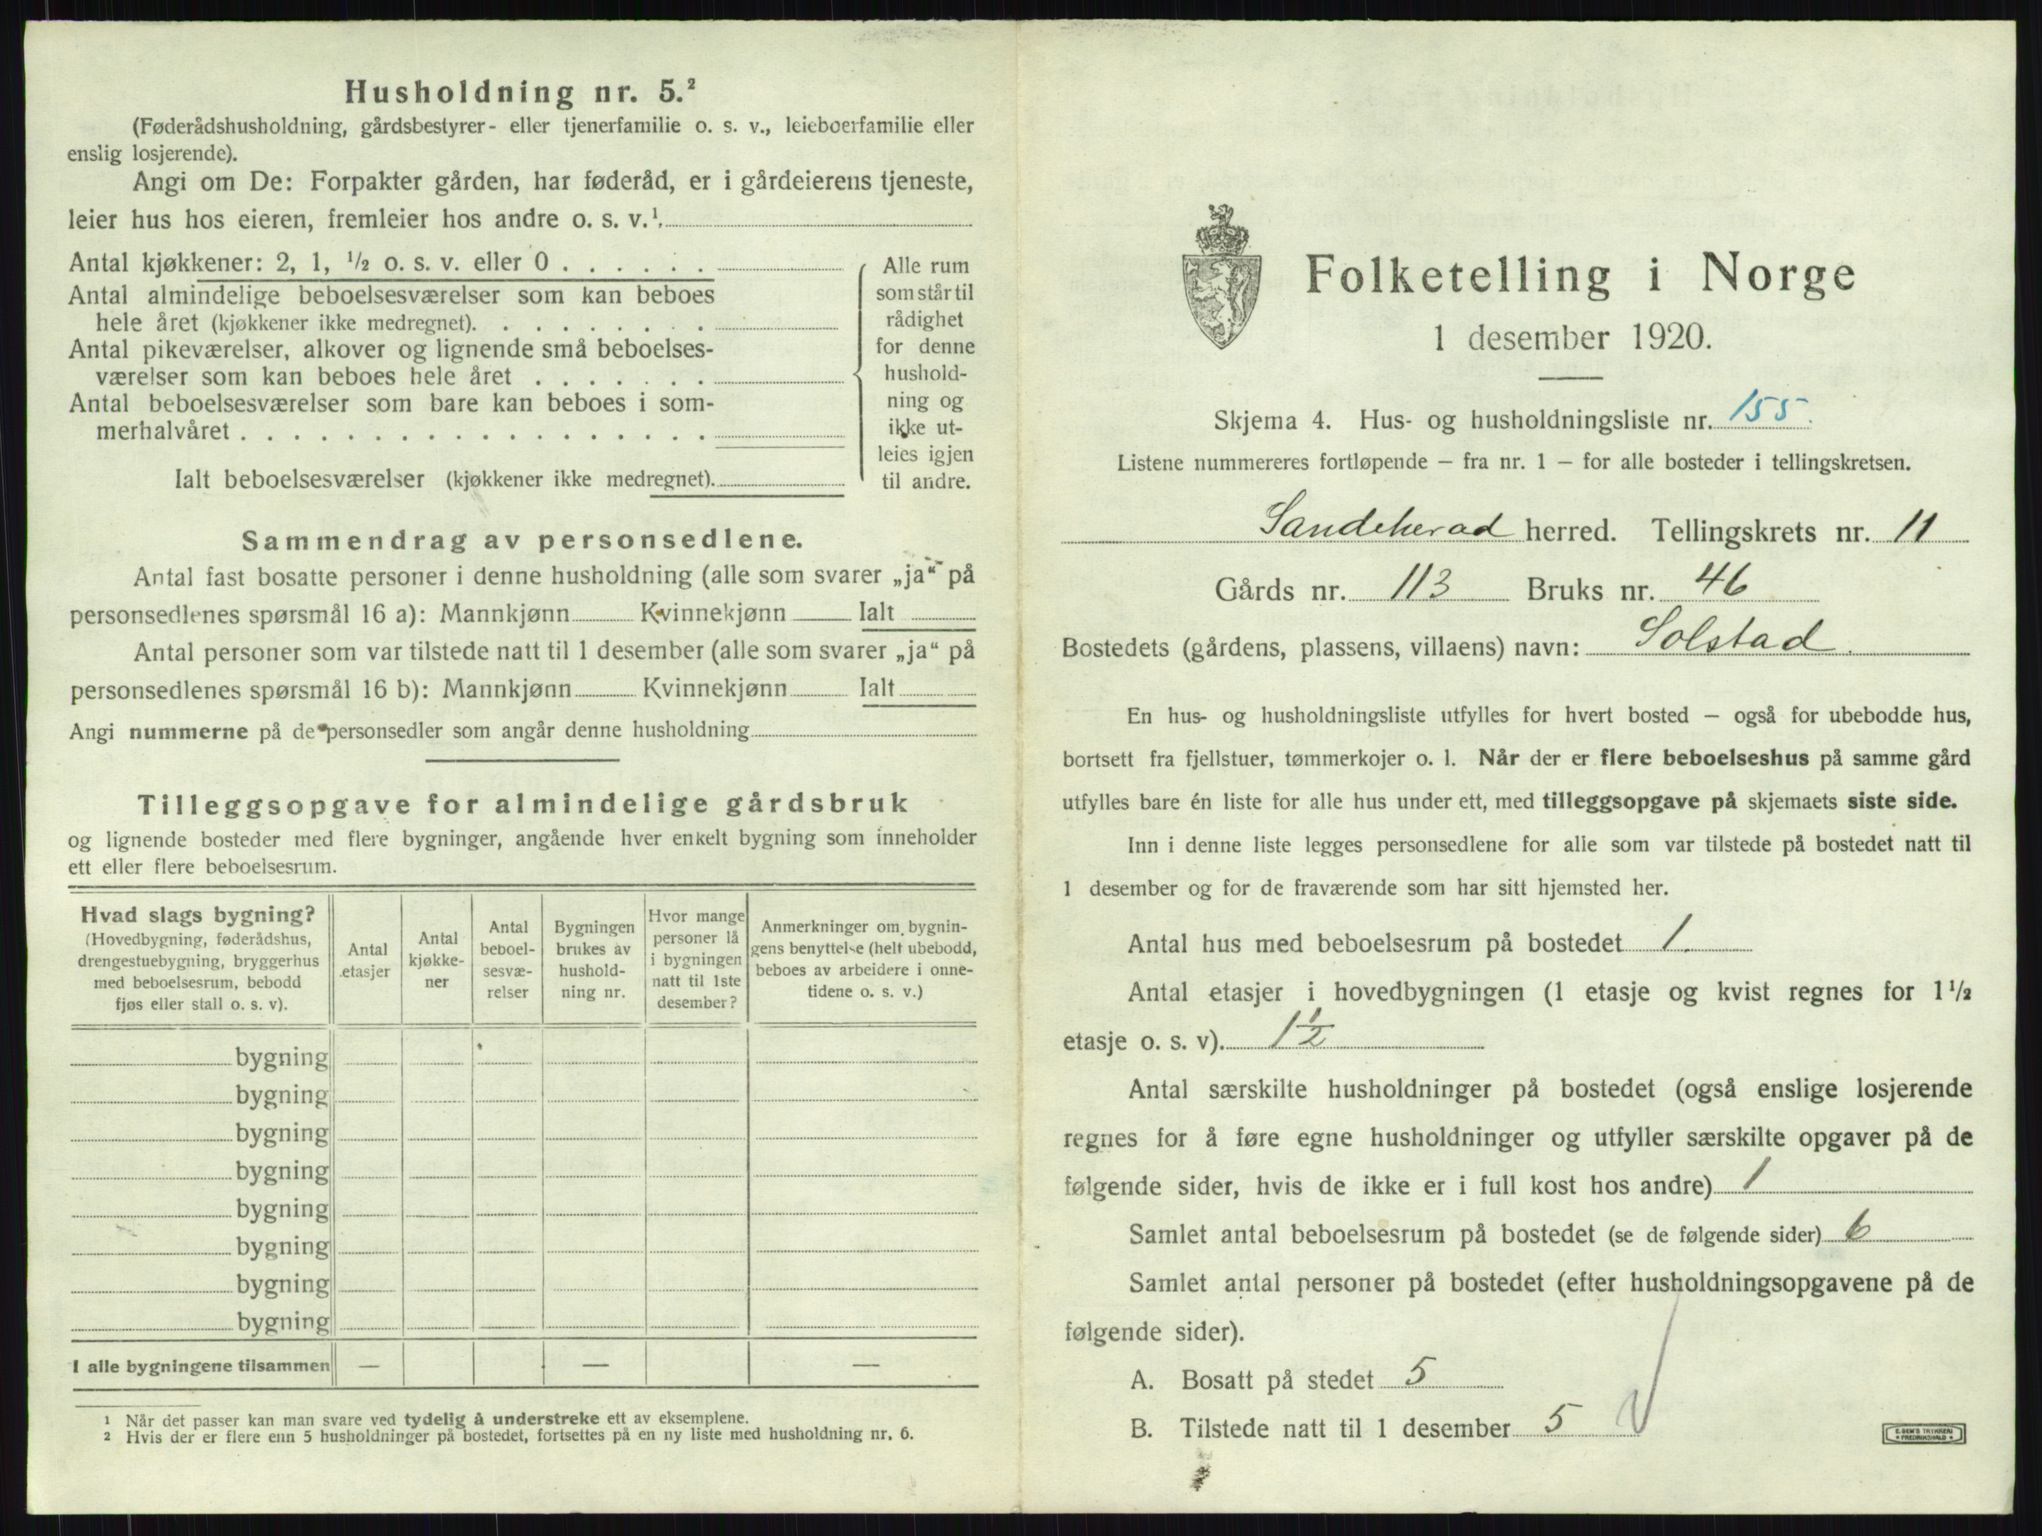 Husholdning nr. 5.²
(Føderådshusholdning, gårdsbestyrer- eller tjenerfamilie o. s. v., leieboerfamilie eller
enslig losjerende).
Angi om De: Forpakter gården, har føderåd, er i gårdeierens tjeneste,
leier hus hos eieren, fremleier hos andre o. s. v.¹.
Antal kjøkkener: 2, 1, ½ o. s. v. eller 0 . . . . . .
Antal almindelige beboelsesværelser som kan beboes
hele året (kjøkkener ikke medregnet). . . . . . . . .
Antal pikeværelser, alkover og lignende små beboelses-
værelser som kan beboes hele året . . . . . . .
Antal beboelsesværelser som bare kan beboes i som-
merhalvåret . . . . . . . . . . . . . . . . . .
Ialt beboelsesværelser (kjøkkener ikke medregnet).
Alle rum
som står til
rådighet
for denne
hushold-
ning og
ikke ut-
leies igjen
til andre.
Sammendrag av personsedlene.
Antal fast bosatte personer i denne husholdning (alle som svarer „ja“ på
personsedlenes spørsmål 16 a): Mannkjønn Kvinnekjønn Ialt
Antal personer som var tilstede natt til 1 desember (alle som svarer „ja“ på
personsedlenes spørsmål 16 b): Mannkjønn Kvinnekjønn Ialt
Angi nummerne på de personsedler som angår denne husholdning
Tilleggsopgave for almindelige gårdsbruk
og lignende bosteder med flere bygninger, angående hver enkelt bygning som inneholder
ett eller flere beboelsesrum.
Hvad slags bygning?
(Hovedbygning, føderådshus,
drengestuebygning, bryggerhus
med beboelsesrum, bebodd
fjøs eller stall o. s. v).
Antal
etasjer
Antal
kjøkke-
ner
Antal
beboel-
sesvæ-
relser
Bygningen
brukes av
hushold-
ning nr.
Hvor mange
personer lå
i bygningen
natt til 1ste
desember?
Anmerkninger om bygnin-
gens benyttelse (helt ubebodd,
beboes av arbeidere i onne-
tidene o. s. v.)
bygning
bygning
bygning
bygning
bygning
bygning
bygning
bygning
I alle bygningene tilsammen — — —
¹ Når det passer kan man svare ved tydelig å understreke ett av eksemplene.
² Hvis der er flere enn 5 husholdninger på bostedet, fortsettes på en ny liste med husholdning nr. 6.
Folketelling i Norge
1 desember 1920.
Skjema 4. Hus- og husholdningsliste nr. 155.
Listene nummereres fortløpende – fra nr. 1 – for alle bosteder i tellingskretsen.
Sandeherad herred. Tellingskrets nr. 11
Gårds nr. 113 Bruks nr. 46
Bostedets (gårdens, plassens, villaens) navn: Solstad.
En hus- og husholdningsliste utfylles for hvert bosted – også for ubebodde hus,
bortsett fra fjellstuer, tømmerkojer o. l. Når der er flere beboelseshus på samme gård
utfylles bare én liste for alle hus under ett, med tilleggsopgave på skjemaets siste side.
Inn i denne liste legges personsedlene for alle som var tilstede på bostedet natt til
1 desember og for de fraværende som har sitt hjemsted her.
Antal hus med beboelsesrum på bostedet 1.
Antal etasjer i hovedbygningen (1 etasje og kvist regnes for 1½
etasje o. s. v). 1½
Antal særskilte husholdninger på bostedet (også enslige losjerende
regnes for å føre egne husholdninger og utfyller særskilte opgaver på de
følgende sider, hvis de ikke er i full kost hos andre) 1
Samlet antal beboelsesrum på bostedet (se de følgende sider) 6
Samlet antal personer på bostedet (efter husholdningsopgavene på de
følgende sider).
A. Bosatt på stedet 5
B. Tilstede natt til 1 desember 5